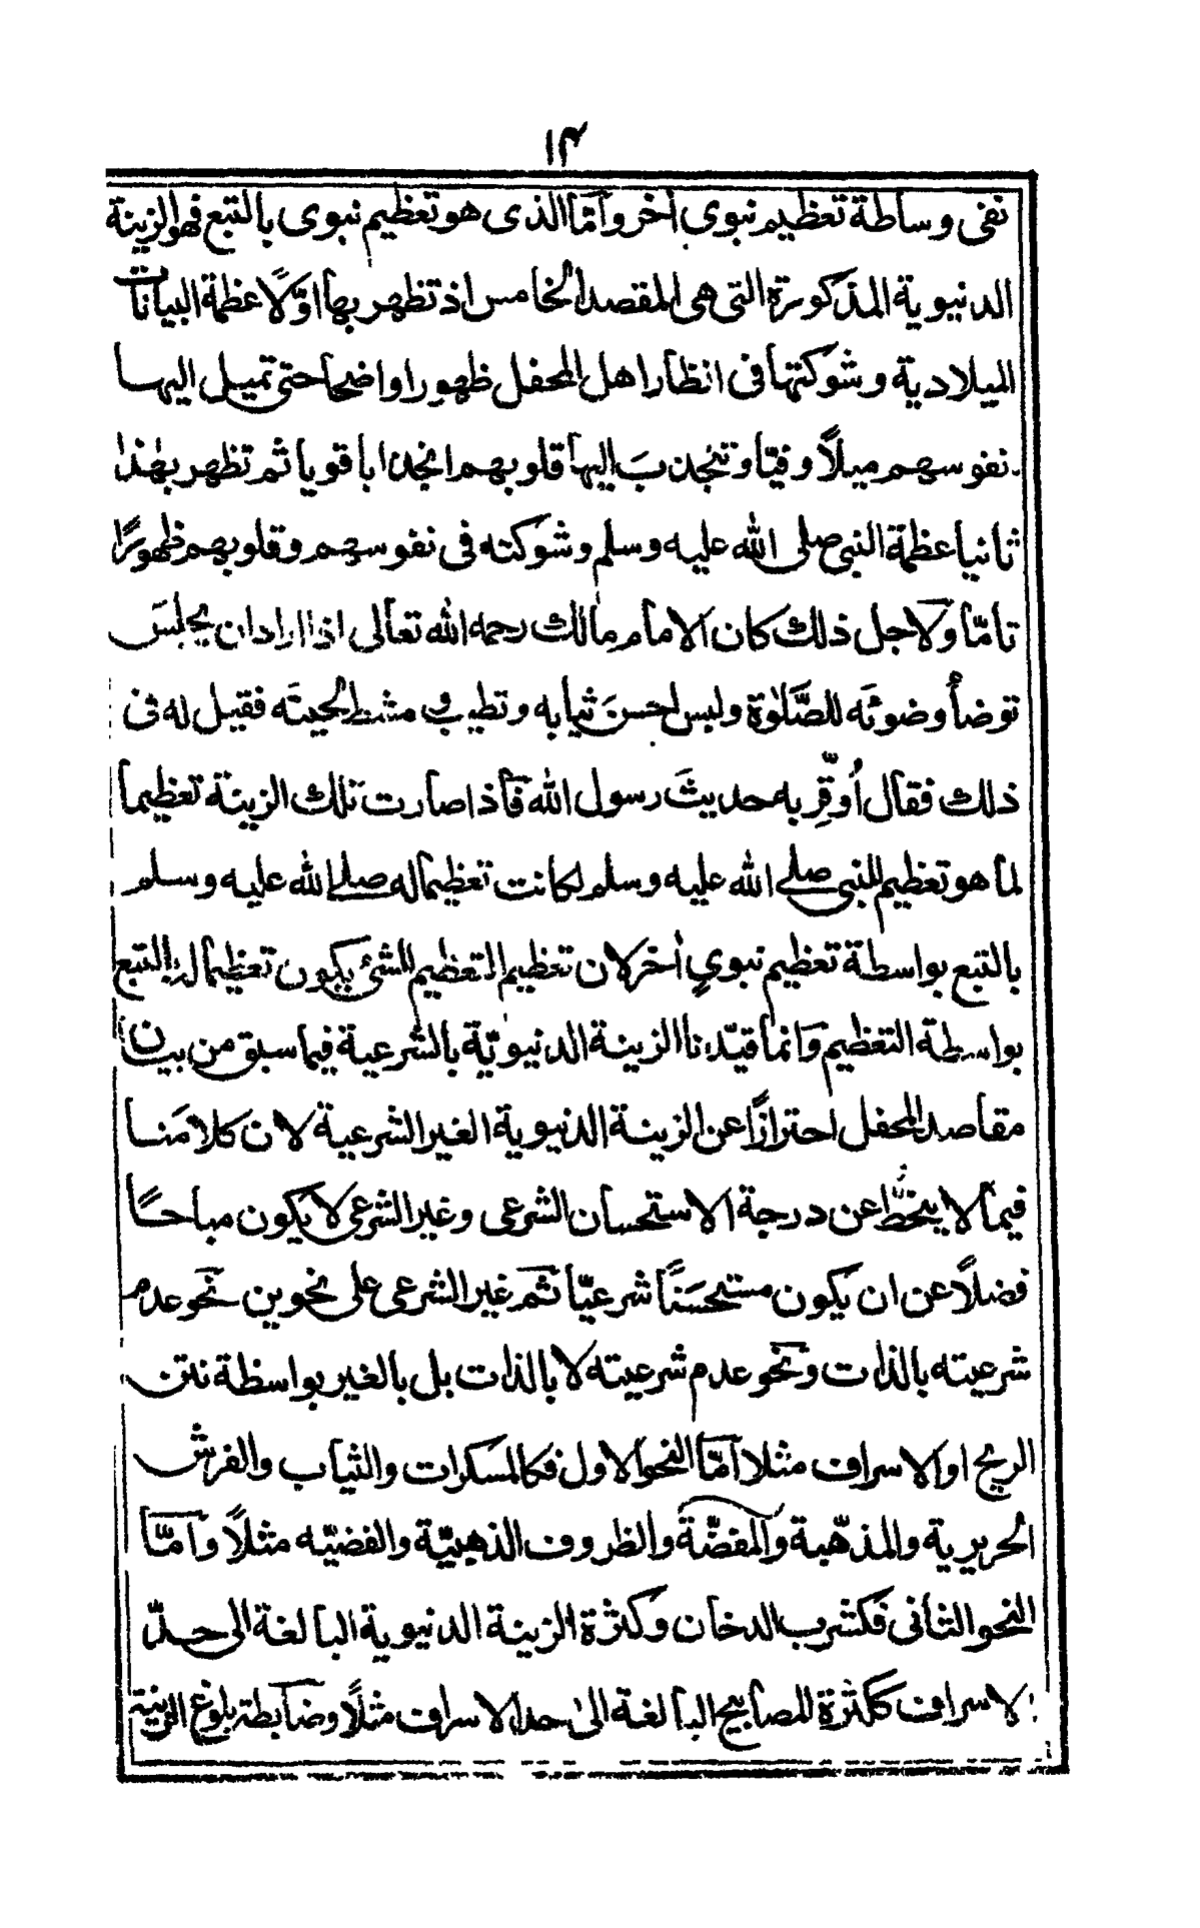 ۱۴
نفى وساطة تعظيم نبوى أخر وأمّا الذى هو تعظيم نبوى بالتبع فهو الزينة
الدنيوية المذكورة التى هى المقصد الخامس اذ تظهر بها اوّلًا عظمة البيانات
الميلادية وشوكتها فى انظار اهل المحفل ظهورا واضحا حتى تميل اليها
نفوسهم ميلًا وفيّا وتنجذبَ اليها قلوبهم انجذابا قويا ثم تظهر بهٰذا
ثانيا عظمة النبى صلى الله عليه وسلم وشوكته فى نفوسهم وقلوبهم ظهورًا
تامّا ولاجل ذلك كان الامام مالك رحمه الله تعالى اذا اراد ان يجلسَ
توضأ وضوئَه للصَّلٰوة ولبس احسنَ ثيابه وتطيب و مشط لحيتَه فقيل له فى
ذلك فقال أُوقِّر به حديثَ رسول الله فاذا صارت تلك الزينة تعظيما
لما هو تعظيم للنبى صلى الله عليه وسلم لكانت تعظيما له صلى الله عليه وسلم
بالتبع بواسطة تعظيم نبوىٍ أخر لان تعظيم التعظيم للشئ يكون تعظيما له بالتبع
بواسطة التعظيم وانما قيّدنا الزينة الدنيويّة بالشرعية فيما سبق من بيان
مقاصد المحفل احترازًا عن الزينة الدنيوية الغير الشرعية لان كلامَنا
فيما لا ينحطّ عن درجة الاستحسان الشرعى وغير الشرعى لا يكون مباحًا
فضلًا عن ان يكون مستحسَنًا شرعيّا ثم غير الشرعى على نحوين نحو عدم
شرعيته بالذات ونحو عدم شرعيته لا بالذات بل بالغير بواسطة نتن
الريح او الاسراف مثلا امّا النحو الاول فكالمسكرات والثياب والفرش
الحريرية والمذهّبة والمفضّة والظروف الذهبيّة والفضيّه مثلًا وامّا
النحو الثانى فكشرب الدخان وكثرة الزينة الدنيوية البالغة الى حدّ
الاسراف ككثرة المصابيح البالغة الىٰ حد الاسراف مثلًا وضابطة بلوغ الزينة